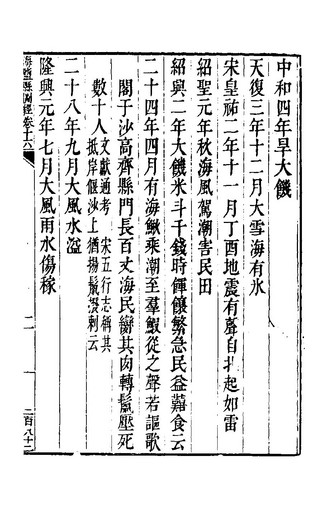 中和四年旱大饑
天復三年十二月大雪海有氷
宋皇祐二年十一月丁酉地震有聲自北起如雷
紹聖元年秋海風駕潮害民田
紹興二年大饑米斗千錢時餫饟繁急民益艱食云
二十四年四月有海鰍乘潮至羣鰕從之聲若謳歌
閣于沙高齊縣門長百丈海民臠其肉轉鬣壓死
數十人文獻通考　宋五行志稱其
抵岸偃沙上猶揚鬣撥剌云
二十八年九月大風水溢
隆興元年七月大風雨水傷稼
海鹽縣圖經卷十六
二
二百八十二